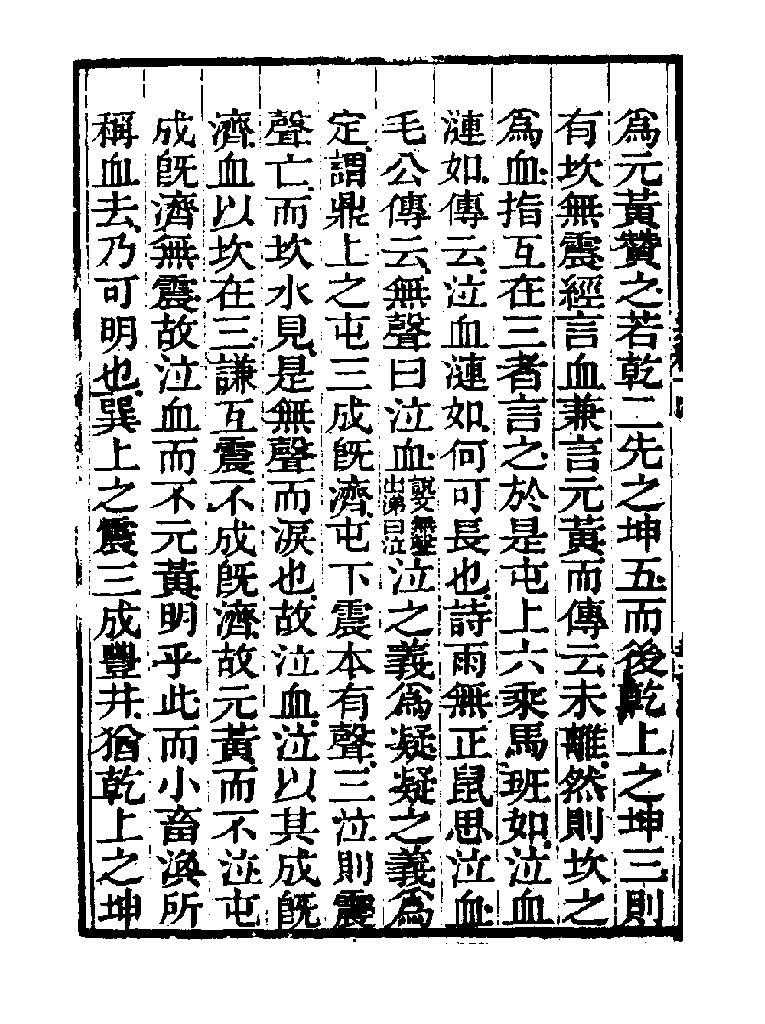 爲元黃贊之若乾二先之坤五而後乾上之坤三則
有坎無震經言血兼言元黃而傳云未離然則坎之
爲血指互在三者言之於是屯上六乘馬班如泣血
漣如傳云泣血漣如何可長也詩雨無正鼠思泣血
毛公傳云無聲曰泣血說文無聲出涕曰泣泣之義爲疑疑之義爲
定謂鼎上之屯三成旣濟屯下震本有聲三泣則震
聲亡而坎水見是無聲而淚也故泣血泣以其成旣
濟血以坎在三謙互震不成旣濟故元黃而不泣屯
成旣濟無震故泣血而不元黃明乎此而小畜渙所
稱血去乃可明也巽上之震三成豐井猶乾上之坤